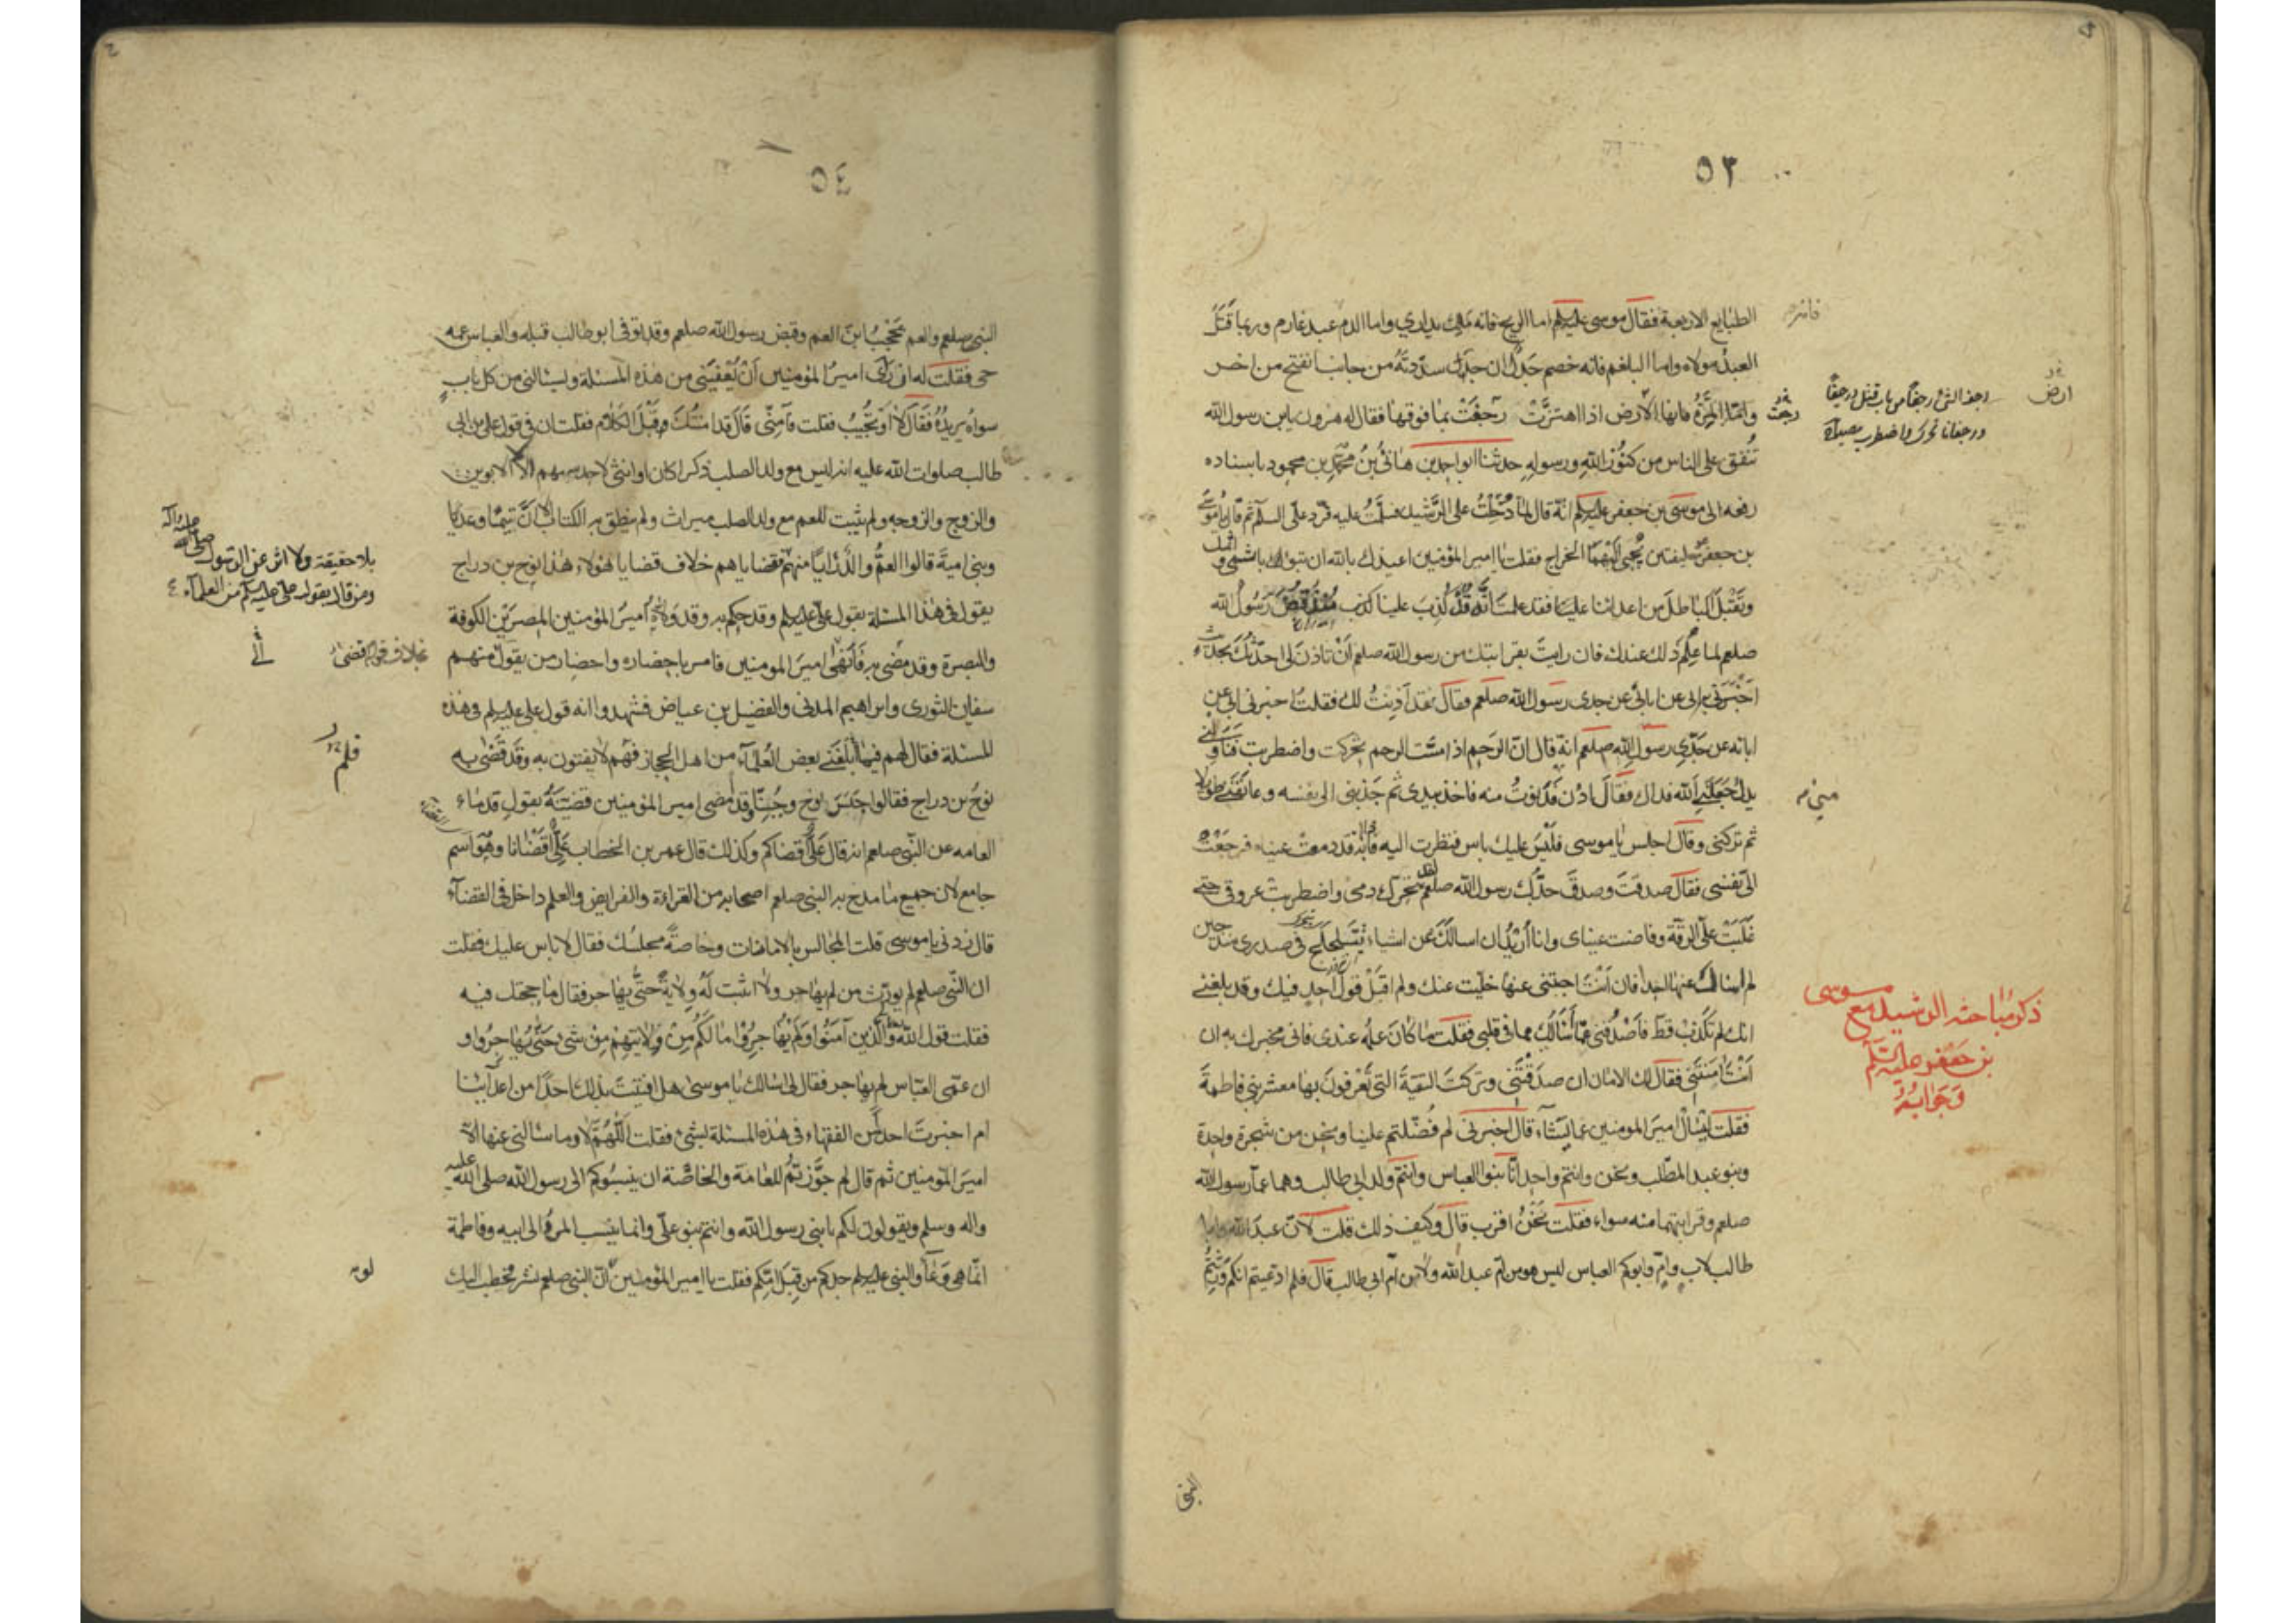 ٥٣
الطبايع الاربعة فقال موسى عليه السلم اما الريح فانه ملك يدارى واما الدم عبد غارم وربما قتل
العبد مولاه واما البلغم فانه خصم جدل ان سددته من جانب انفتح من اخر
واما المرة فانها الارض اذا اهتزت رجفت بما فوقها فقال له هرون يابن رسول الله
تنفق على الناس من كنوز الله ورسوله حدثنا ابو احمد هانئ بن محمد بن محمود باسناده
رفعه الى موسى بن جعفر عليه السلم انه قال لما دخلت على الرشيد فسلمت عليه فرد على السلم ثم قال يا موسى
بن جعفر خليفتين يجبى اليهما الخراج فقلت يا امير المؤمنين اعيذك بالله ان تبوء باثمى واثمك
وتقبل الباطل من اعدائنا علينا فقد علمت انه قد كذب علينا منذ قبض رسول الله
صلعم بما علم ذلك عندك فان رايت بقرابتك من رسول الله صلعم ان تاذن لى احدثك بحديث
اخبرنى به ابى عن ابائه عن جدى رسول الله صلعم فقال قد اذنت لك فقلت اخبرنى ابى عن
ابائه عن جدى رسول الله صلعم انه قال ان الرحم اذا مست الرحم تحركت واضطربت فناولنى
يدك جعلنى الله فداك فقال ادن فدنوت منه فاخذ بيدى ثم جذبنى الى نفسه وعانقنى طويلا
ثم تركنى وقال اجلس يا موسى فليس عليك باس فنظرت اليه فاذا به قد دمعت عيناه فرجعت
الى نفسى فقال صدقت وصدق جدك رسول الله صلعم لقد تحرك دمى واضطربت عروقى حتى
غلبت على الرقة وفاضت عيناى وانا اريد ان اسالك عن اشياء تتلجلج فى صدرى منذ حين
لم اسال عنها احدا فان انت اجبتنى عنها خليت عنك ولم اقبل قول احد فيك وقد بلغنى
انك لم تكذب قط فاصدقنى عما اسالك مما فى قلبى فقلت ما كان علمه عندى فانى مخبرك به ان
انت امنتنى فقال لك الامان ان صدقتنى وتركت التقية التى تعرفون بها معشر بنى فاطمة
فقلت ليسال امير المومنين عما يشاء قال اخبرنى لم فضلتم علينا ونحن من شجرة واحدة
وبنو عبد المطلب ونحن وانتم واحد انا بنو العباس وانتم ولد ابى طالب وهما عما رسول الله
صلعم وقرابتهما منه سواء فقلت نحن اقرب قال وكيف ذلك قلت لان عبد الله وابا
طالب لاب وام وابوكم العباس ليس هو من ام عبد الله ولا من ام ابى طالب قال فلم ادعيتم انكم ورثتم
ارض
رجفت
رجف الشئ رجفا من باب قتل ورجيفا
ورجفانا تحرك واضطرب مصباح
ذكر مباحثه الرشيد مع موسى
بن جعفر عليه السلم
وجوابه
النبى
٥٤
النبى صلعم والعم يحجب ابن العم وقبض رسول الله صلعم وقد توفى ابو طالب قبله والعباس عمه
حى فقلت له ان راى امير المؤمنين ان يعفينى من هذه المسئلة ويسالنى من كل باب
سواه يريده فقال لا او تجيب فقلت فامنى قال قد امنتك قبل الكلام فقلت ان فى قول على بن ابى
طالب صلوات الله عليه انه ليس مع ولد الصلب ذكرا كان او انثى لاحد سهم الا الابوين
والزوج والزوجه ولم يثبت للعم مع ولد الصلب ميراث ولم ينطق به الكتاب الا ان تيما وعديا
وبنى امية قالوا العم والد رايا منهم فقضاياهم خلاف قضايا هؤلاء هذا نوح بن دراج
يقول فى هذا المسئلة بقول على عليه السلم وقد حكم به وقد ولاه امير المؤمنين المصرين الكوفة
والبصرة وقد مضى به فانهى امير المومنين فامر باحضاره واحضار من يقول منهم
سفين الثورى وابراهيم المدنى والفضيل بن عياض فشهدوا انه قول على عليه السلم فى هذه
المسئلة فقال لهم فيما ابلغنى بعض العلماء من اهل الحجاز فهم لا يفتون به وقد قضى به
نوح بن دراج فقالوا جسر نوح وجبنا وقد امضى امير المؤمنين قضيته بقول قدماء
العامه عن النبى صلعم انه قال على اقضاكم وكذلك قال عمر بن الخطاب على اقضانا وهو اسم
جامع لان جميع ما مدح به النبى صلعم اصحابه من القراءة والفرايض والعلم داخل فى القضاء
قال زدنى يا موسى قلت المجالس بالامانات وخاصة مجلسك فقال لا باس عليك فقلت
ان النبى صلعم لم يورث من لم يهاجر ولا اثبت له ولاية حتى يهاجر فقال ما حجتك فيه
فقلت قول الله والذين آمنوا ولم يهاجروا ما لكم من ولايتهم من شئ حتى يهاجروا و
ان عمى العباس لم يهاجر فقال لى اسالك يا موسى هل افتيت بذلك احدا من اعدائنا
ام اخبرت احدا من الفقهاء فى هذه المسئلة بشئ فقلت اللهم لا وما سئالنى عنها الا
امير المؤمنين ثم قال لم جوزتم للعامة والخاصة ان ينسبوكم الى رسول الله صلى الله عليه
واله وسلم ويقولون لكم يا بنى رسول الله وانتم بنو على وانما ينسب المرء الى ابيه وفاطمة
انما هى وعاء والنبى عليه السلم جدكم من قبل امكم فقلت يا امير المؤمنين لو ان النبى صلعم نشر فخطب اليك
بلا حقيقة ولا اثر عن الرسول صلى الله عليه واله
ومن قال بقول على عليه السلم من العلماء
بخلاف قوله قضى
فلم